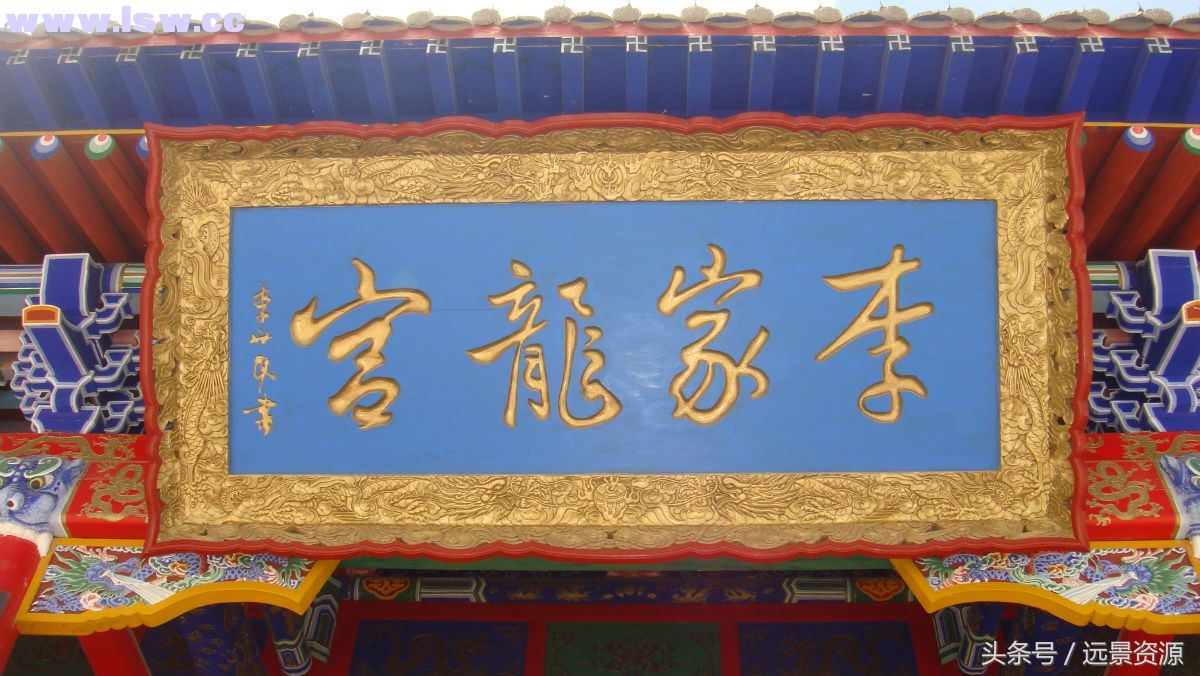 www.lsw.cc
李家龍宮
李世民書
头条号 / 远景资源